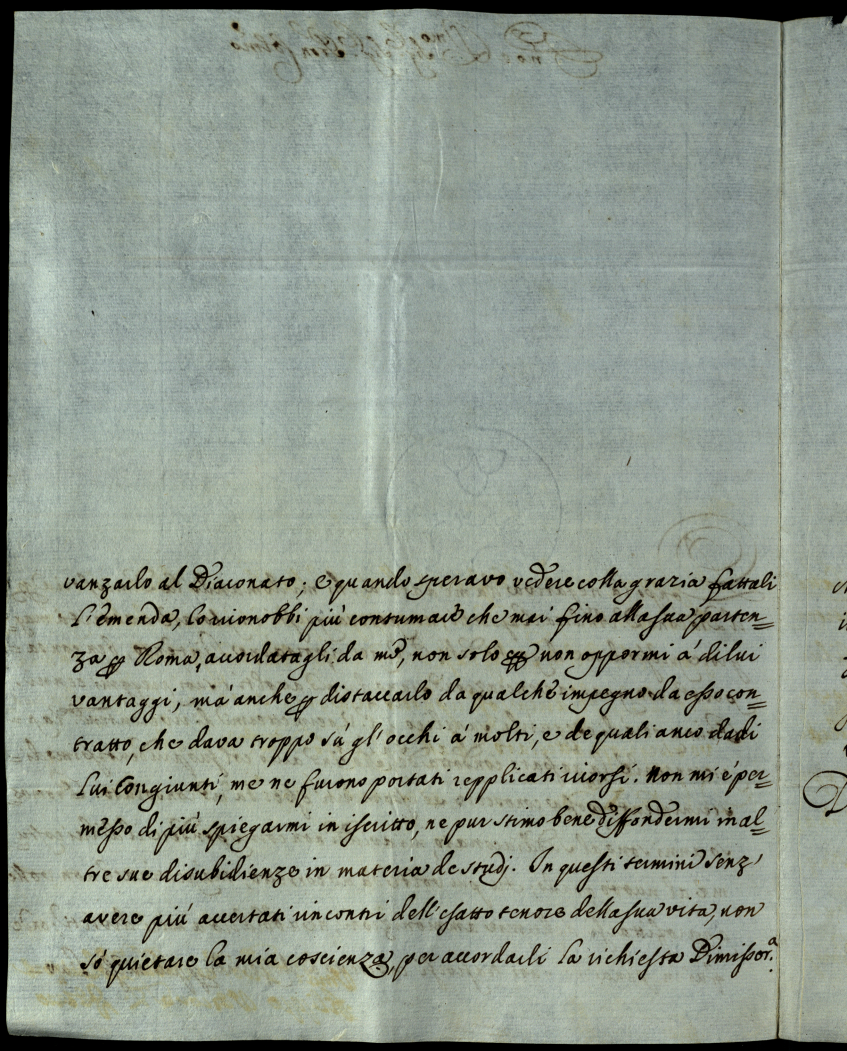 vanzarlo al Diaconato; e quando speravo vedere colla grazia fattali
l'emenda, lo riconobbi più contumace che mai fino alla sua parten=
za p Roma, accordatagli da me, non solo p non oppormi á di lui
vantaggi, má anche p distaccarlo da qualche impegno da esso con=
tratto, che dava troppo sú gl'occhi á molti, e de quali anco da di
lui Congiunti, me ne furono portati repplicati ricorsi. Non mi é per=
messo di più spiegarmi in iscritto, ne pur stimo bene diffondermi in al=
tre sue disubidienze in materia de studj. In questi termini senz'
avere più accertati rincontri dell'esatto tenore della sua vita, non
só quietare la mia coscienza, per accordarli la richiesta Dimissor.ª